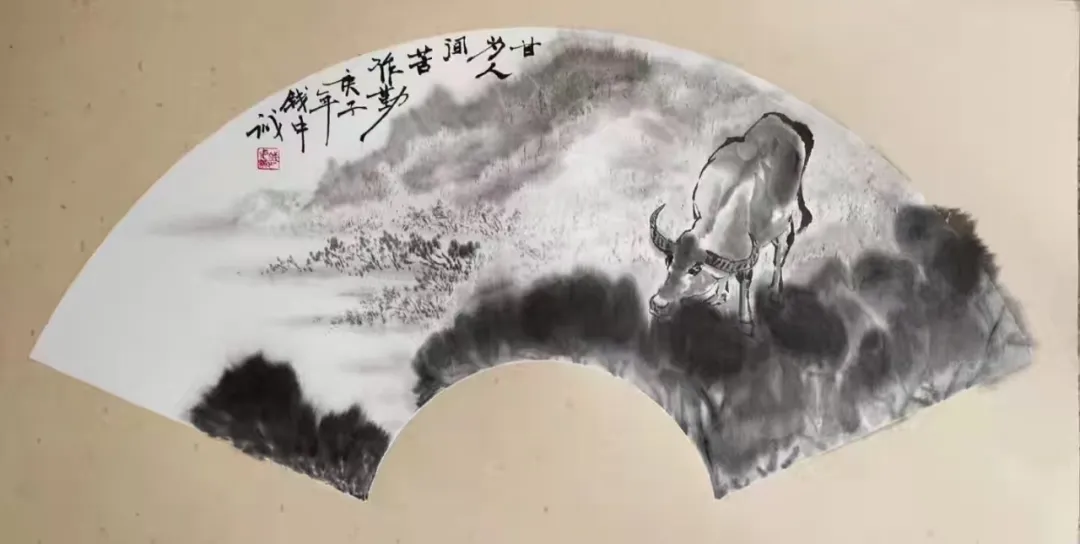 甘
为人
间
苦
作勤
庚子
年
钱中
诚